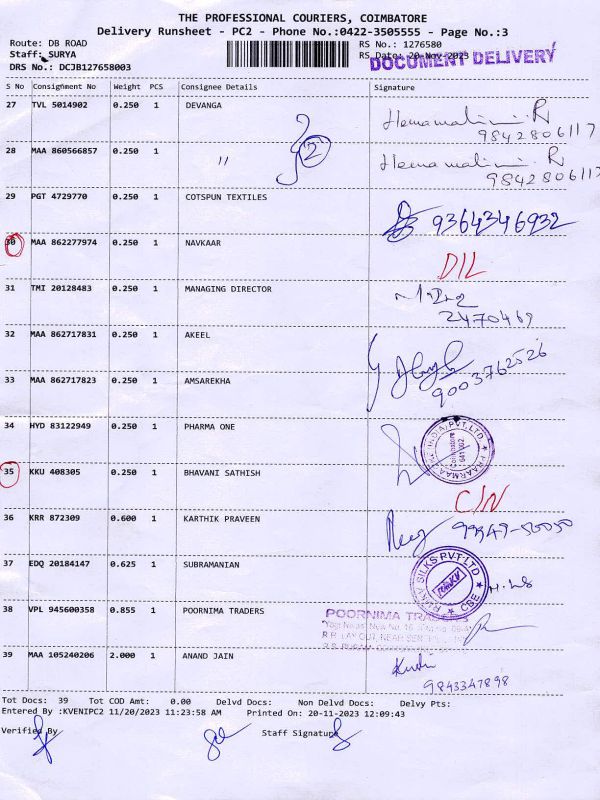 THE PROFESSIONAL COURIERS, COIMBATORE
Delivery Runsheet - PC2 - Phone No.:0422-3505555 - Page No.:3
Route: DB ROAD RS No.: 1276580
Staff: SURYA RS Date: 20-Nov-2023
DOCUMENT DELIVERY
DRS No.: DCJB127658003
S No Consignment No Weight PCS Consignee Details Signature
27 TVL 5014902 0.250 1 DEVANGA
Hemamalini R
9842806117
28 MAA 860566857 0.250 1 〃 2
Hemamalini R
9842806117
29 PGT 4729770 0.250 1 COTSPUN TEXTILES
9364346932
30 MAA 862277974 0.250 1 NAVKAAR
DIL
31 TMI 20128483 0.250 1 MANAGING DIRECTOR
2470469
32 MAA 862717831 0.250 1 AKEEL
9003762526
33 MAA 862717823 0.250 1 AMSAREKHA
34 HYD 83122949 0.250 1 PHARMA ONE
35 KKU 408305 0.250 1 BHAVANI SATHISH
C/N
36 KRR 872309 0.600 1 KARTHIK PRAVEEN
37 EDQ 20184147 0.625 1 SUBRAMANIAN
SILKS PVT LTD
CBE
38 VPL 945600358 0.855 1 POORNIMA TRADERS
POORNIMA TRADERS
39 MAA 105240206 2.000 1 ANAND JAIN
9843347898
Tot Docs: 39 Tot COD Amt: 0.00 Delvd Docs: Non Delvd Docs: Delvy Pts:
Entered By :KVENIPC2 11/20/2023 11:23:58 AM Printed On: 20-11-2023 12:09:43
Verified By Staff Signature